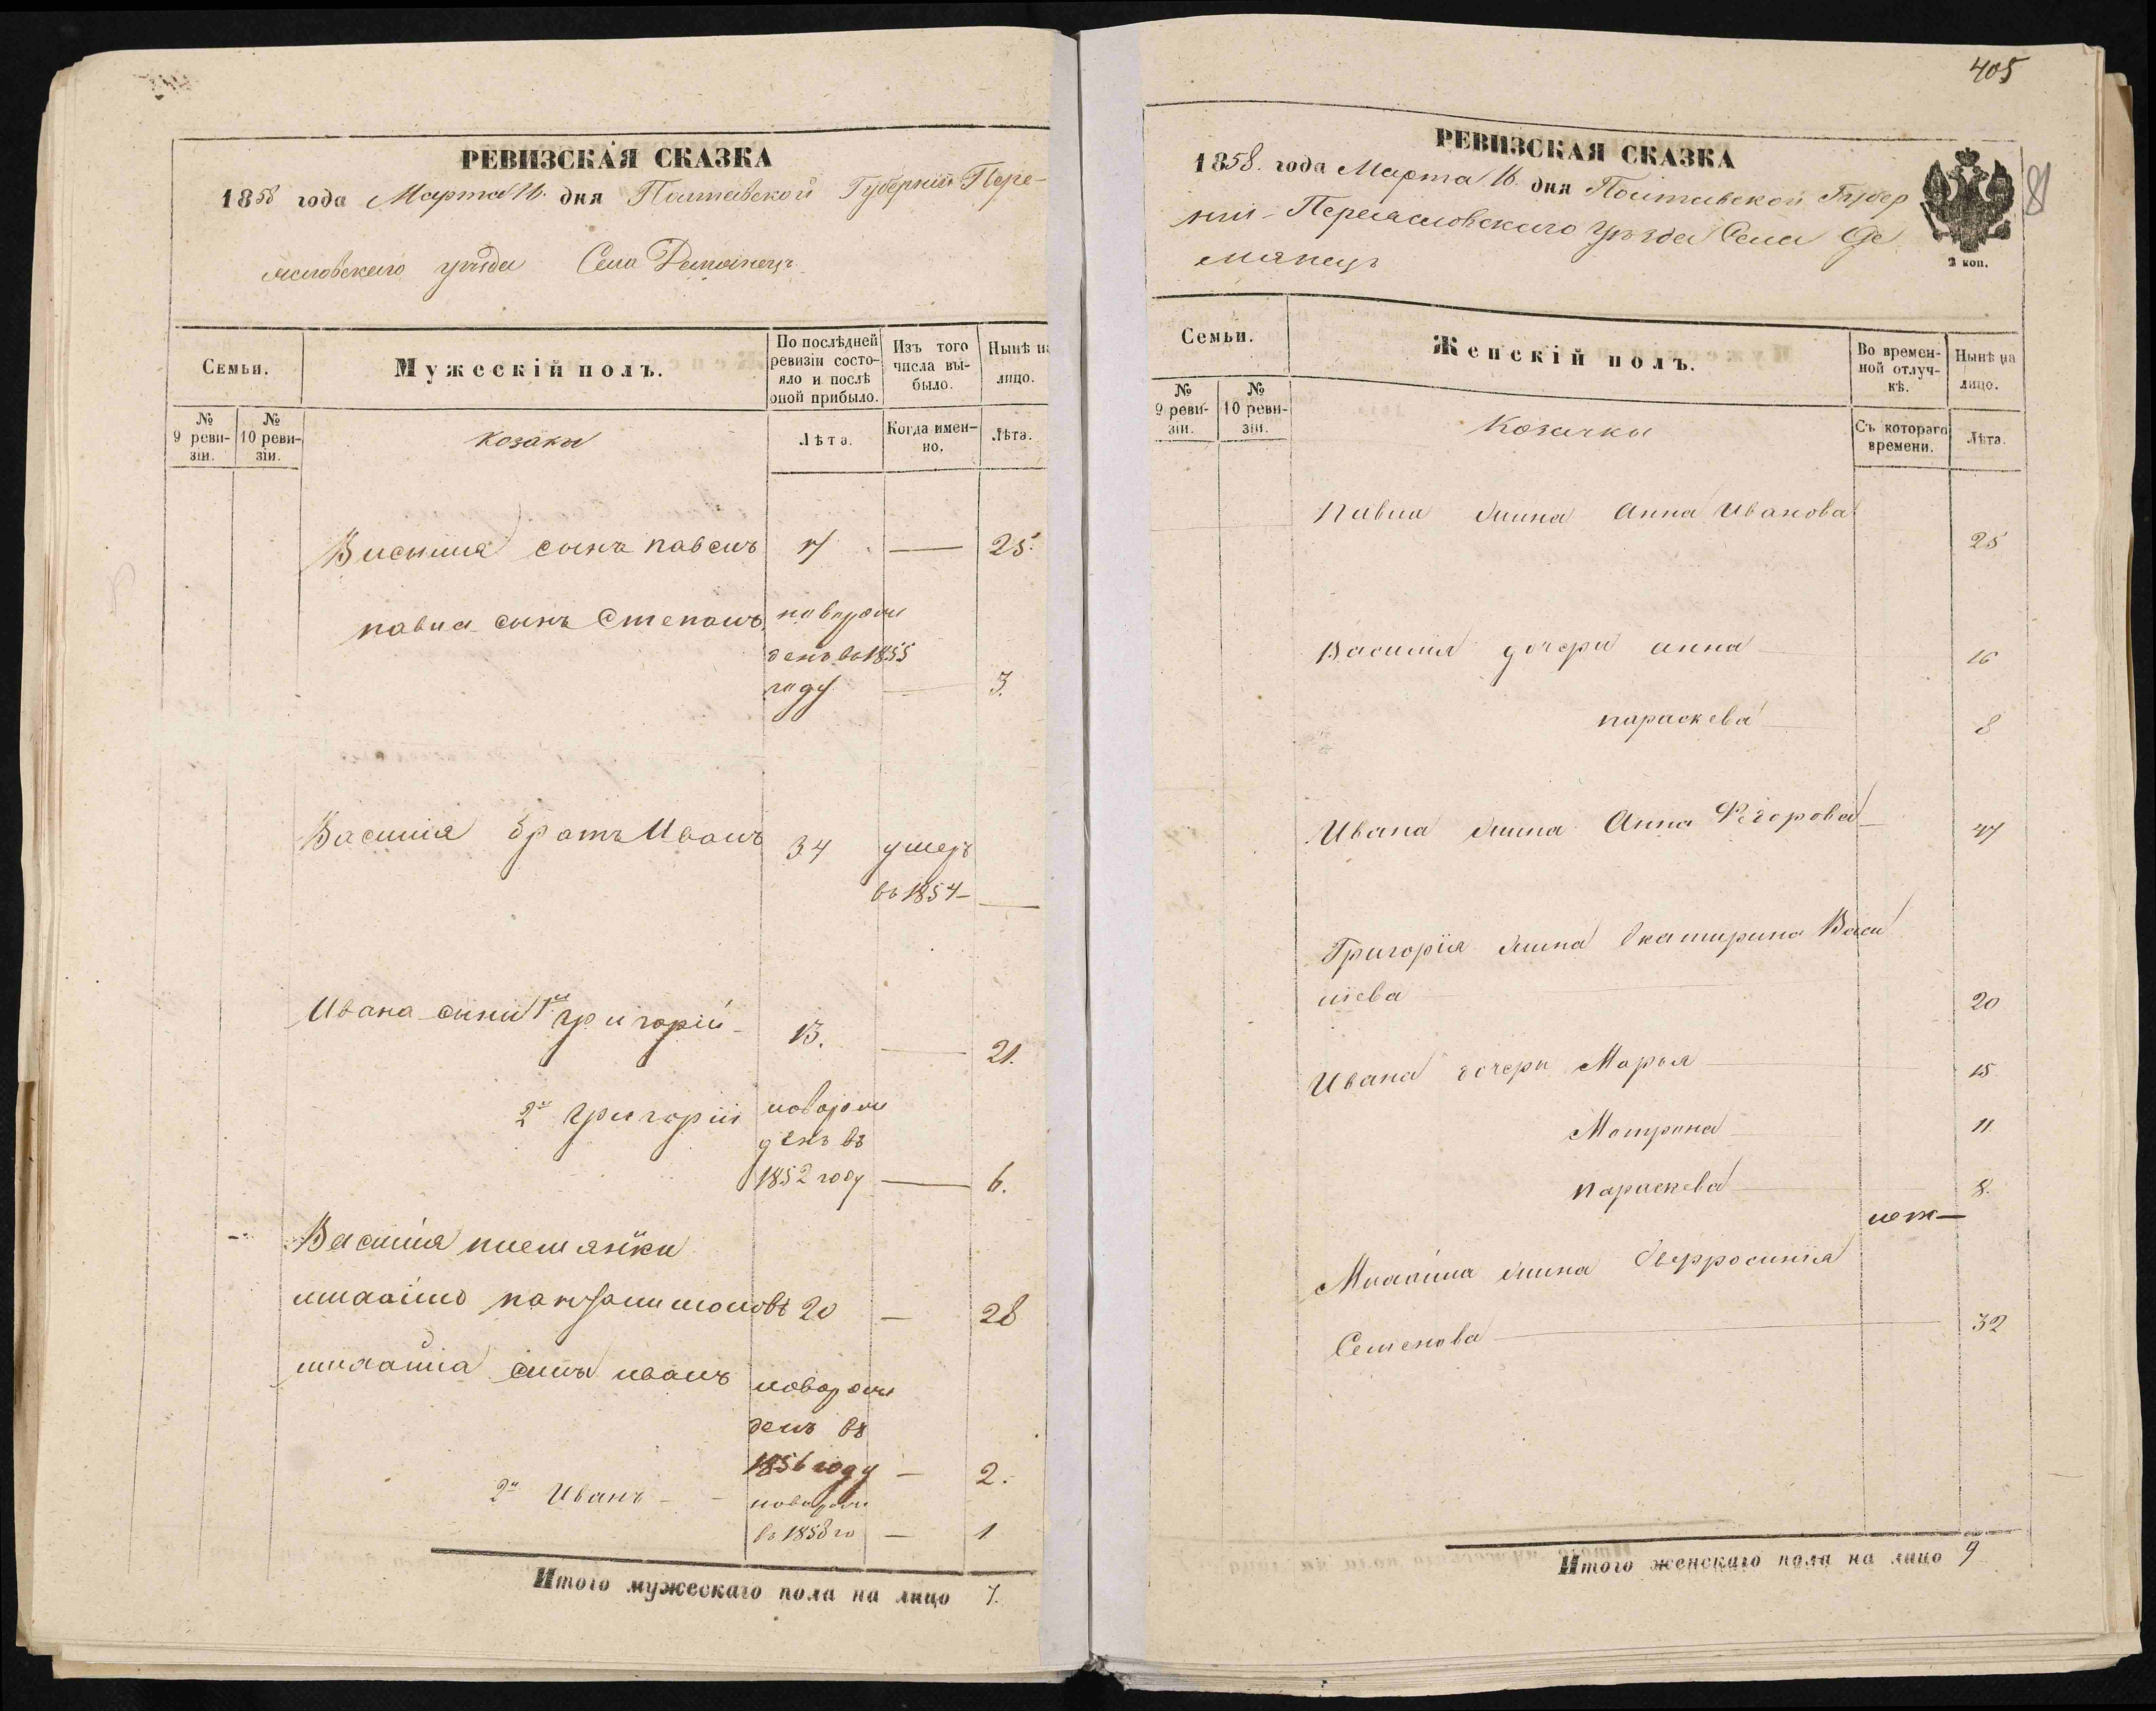 РЕВИЗСКАЯ СКАЗКА
1858 года Марта 16. дня Полтавской Губернии Пере-
яславского уѣзда Села Демянецъ
Семьи.
Мужескій полъ.
По послѣдней ревизіи состояло и послѣ оной прибыло.
Изъ того числа выбыло.
Нынѣ на лицо.
№ 9 ревизіи.
№ 10 ревизіи.
козаки
Лѣта.
Когда именно.
Лѣта.
Василия сынъ павелъ 17 — 25.
павла сынъ Степанъ новорож
денъ въ 1855
году — 3.
Василія братъ Иванъ 34 умеръ
въ 1854 —
Ивана сини 1й григорій 13. — 21.
2й григорій новорож
денъ въ
1852 году — 6.
Василія племянки
20 — 28
сынъ иванъ новорож
денъ въ
1856 году — 2.
2й Иванъ - - новорож
въ 1858 го — 1
Итого мужескаго пола на лицо 7.
405
81
РЕВИЗСКАЯ СКАЗКА
1858. года Марта 16. дня Полтавской Губер
нии Переясловского уѣзда Села Де
мянецъ
2 коп.
Семьи.
Женскій полъ.
Во временной отлучкѣ.
Нынѣ на лицо.
№ 9 ревизіи.
№ 10 ревизіи.
Козачки
Съ котораго времени.
Лѣта.
Павла жина Анна Иванова
25
Василия дочери анна 16
параскева 8
Ивана жина Анна Федорова 47
Григорія жина Екатирина Васи
лиева 20
Ивана дочери Марья 15
Мотрина 11
параскева 8.
жина Евфросиния
Семенова 32
Итого женскаго пола на лицо 9